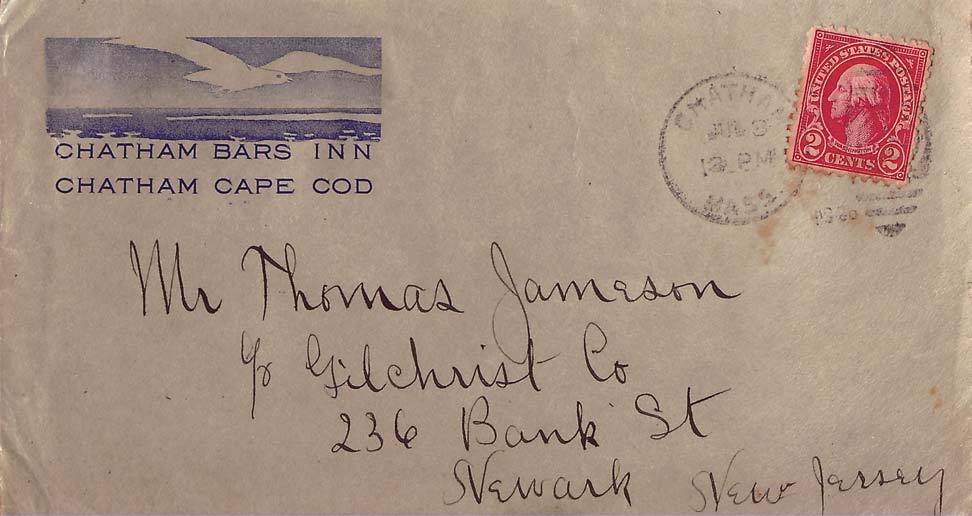 CHATHAM BARS INN
CHATHAM CAPE COD
CHATHAM
MASS
UNITED STATES POSTAGE
WASHINGTON
2 CENTS 2
Mr Thomas Jameson
c/o Gilchrist Co
236 Bank St
Newark New Jersey